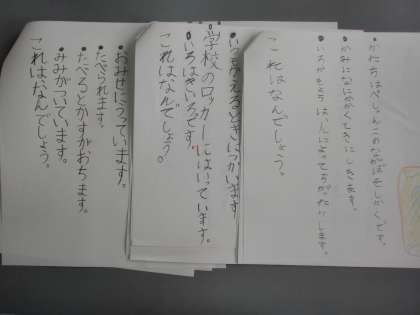 かたちはぺしゃんこのながしかくです。
かみになにかくときにしきます。
いろやもようは人によってちがったりします。
これはなんでしょう。
いつもかえるときにつかいます
学校のロッカーにはいっています。
いろはきいろです。
これはなんでしょう。
おみせにうっています。
たべられます。
たべるとかすがおちます。
みみがついています。
これはなんでしょう。